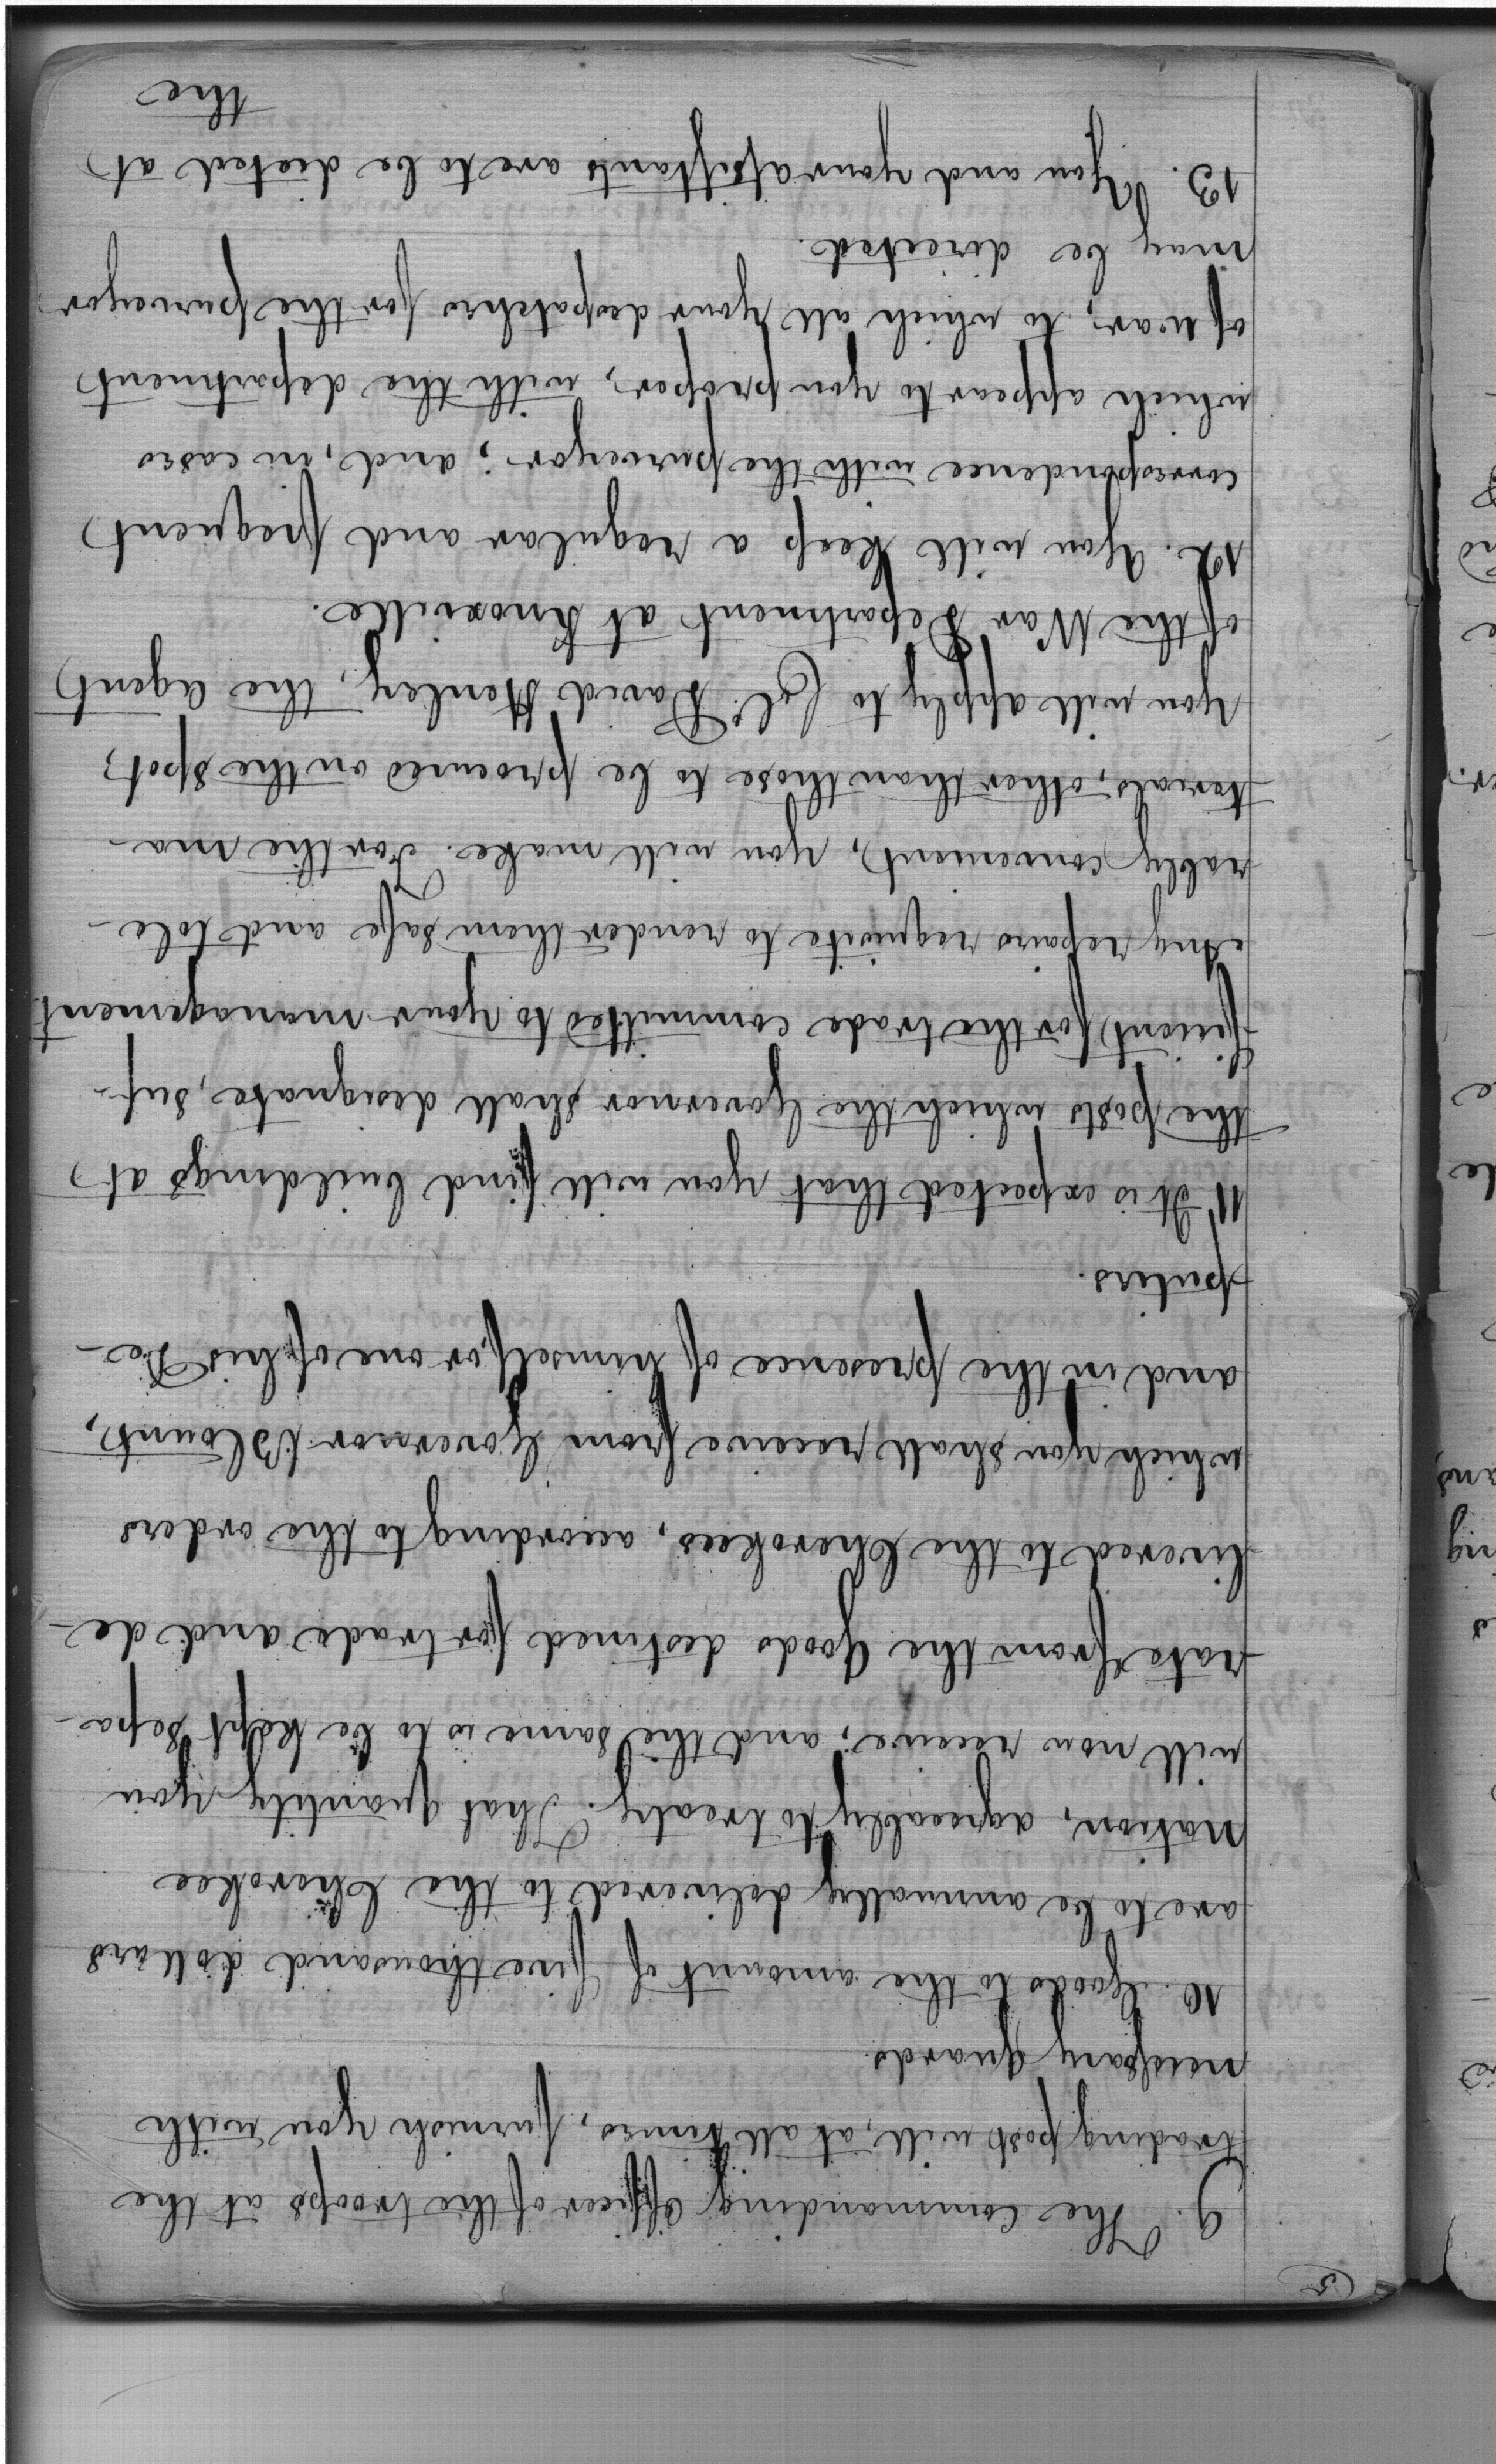 5
9. The commanding officer of the troops at the
trading post will, at all times, furnish you with
necessary guards.
10. Goods to the amount of five thousand dollars
are to be annually delivered to the Cherokee
Nation, agreeably to treaty. That quantity you
will now receive; and the same is to be kept sepa-
rate from the Goods destined for trade and de-
livered to the Cherokees, according to the orders
which you shall receive from Governor Blount,
and in the presence of himself, or one of his De-
puties.
11 It is expected that you will find buildings at
the posts which the Governor shall designate, suf-
ficient for the trade committed to your management
Any repairs requisite to render them safe and tole-
rably convenient, you will make. For the ma-
terials, other than those to be procured on the spot,
you will apply to Col. David Henley, the Agent
of the War Department at Knoxville.
12. You will keep a regular and frequent
correspondence with the purveyor; and, in cases
which appear to you proper, with the department
of war; to which all your despatches for the purveyor
may be directed.
13. You and your assistants are to be dieted at
the